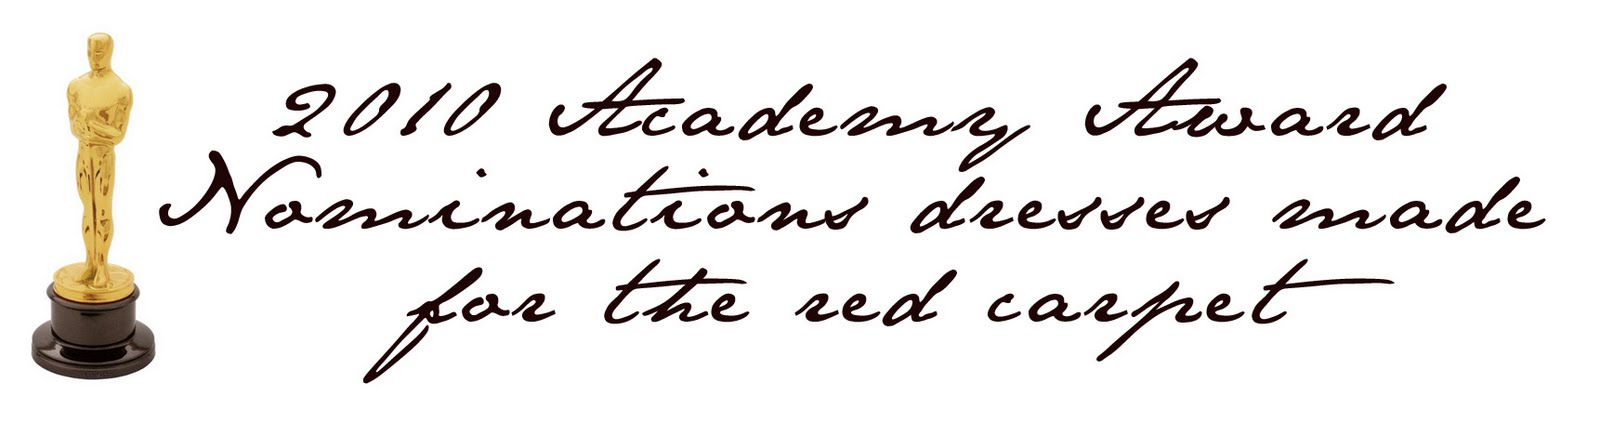 2010 Academy Award
Nominations dresses made
for the red carpet